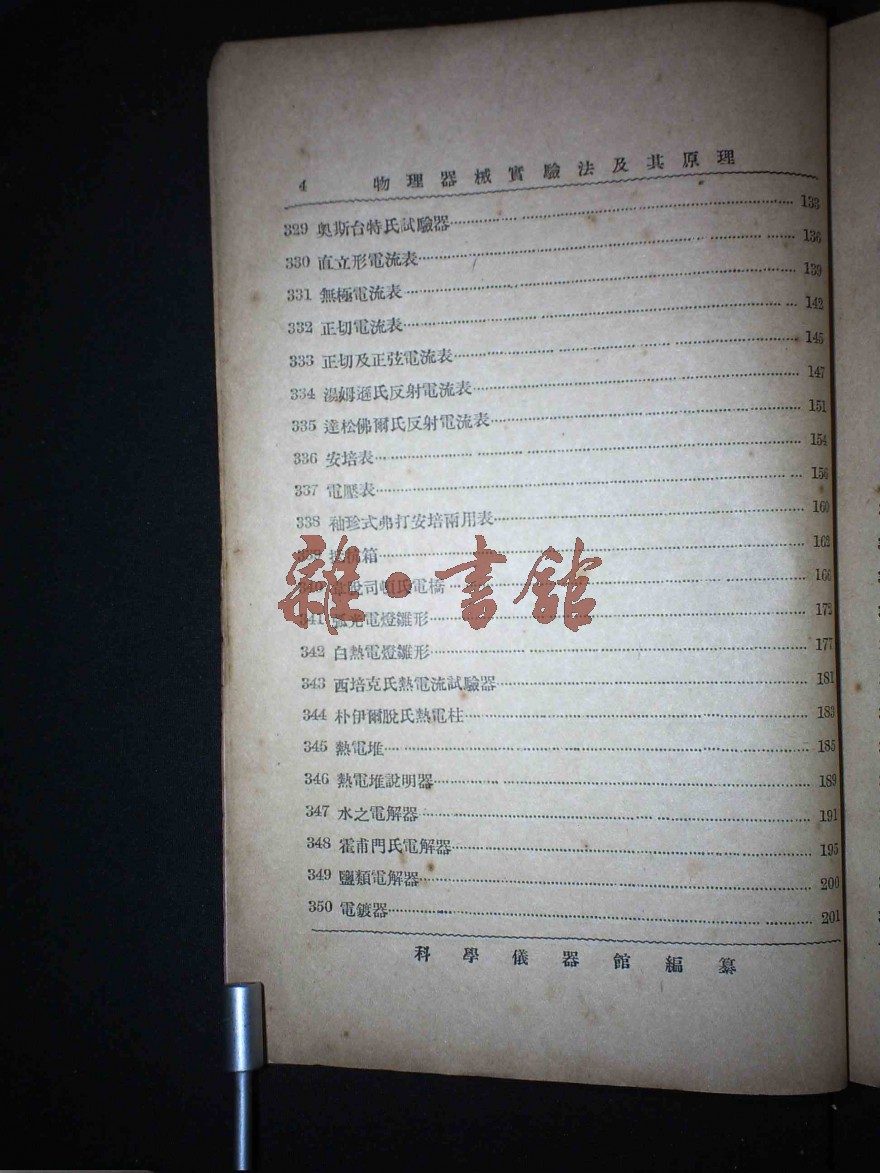 4 物理器械實驗法及其原理
329 奧斯台特氏試驗器 133
330 直立形電流表 136
331 無極電流表 139
332 正切電流表 142
333 正切及正弦電流表 145
334 湯姆遜氏反射電流表 147
335 達松佛爾氏反射電流表 151
336 安培表 154
337 電壓表 156
338 袖珍式弗打安培兩用表 160
339 抵抗箱 162
340 韋脫司頓氏電橋 166
341 弧光電燈雛形 172
342 白熱電燈雛形 177
343 西培克氏熱電流試驗器 181
344 朴伊爾脫氏熱電柱 183
345 熱電堆 185
346 熱電堆說明器 189
347 水之電解器 191
348 霍甫門氏電解器 195
349 鹽類電解器 200
350 電鍍器 201
科學儀器館編纂
雜·書館